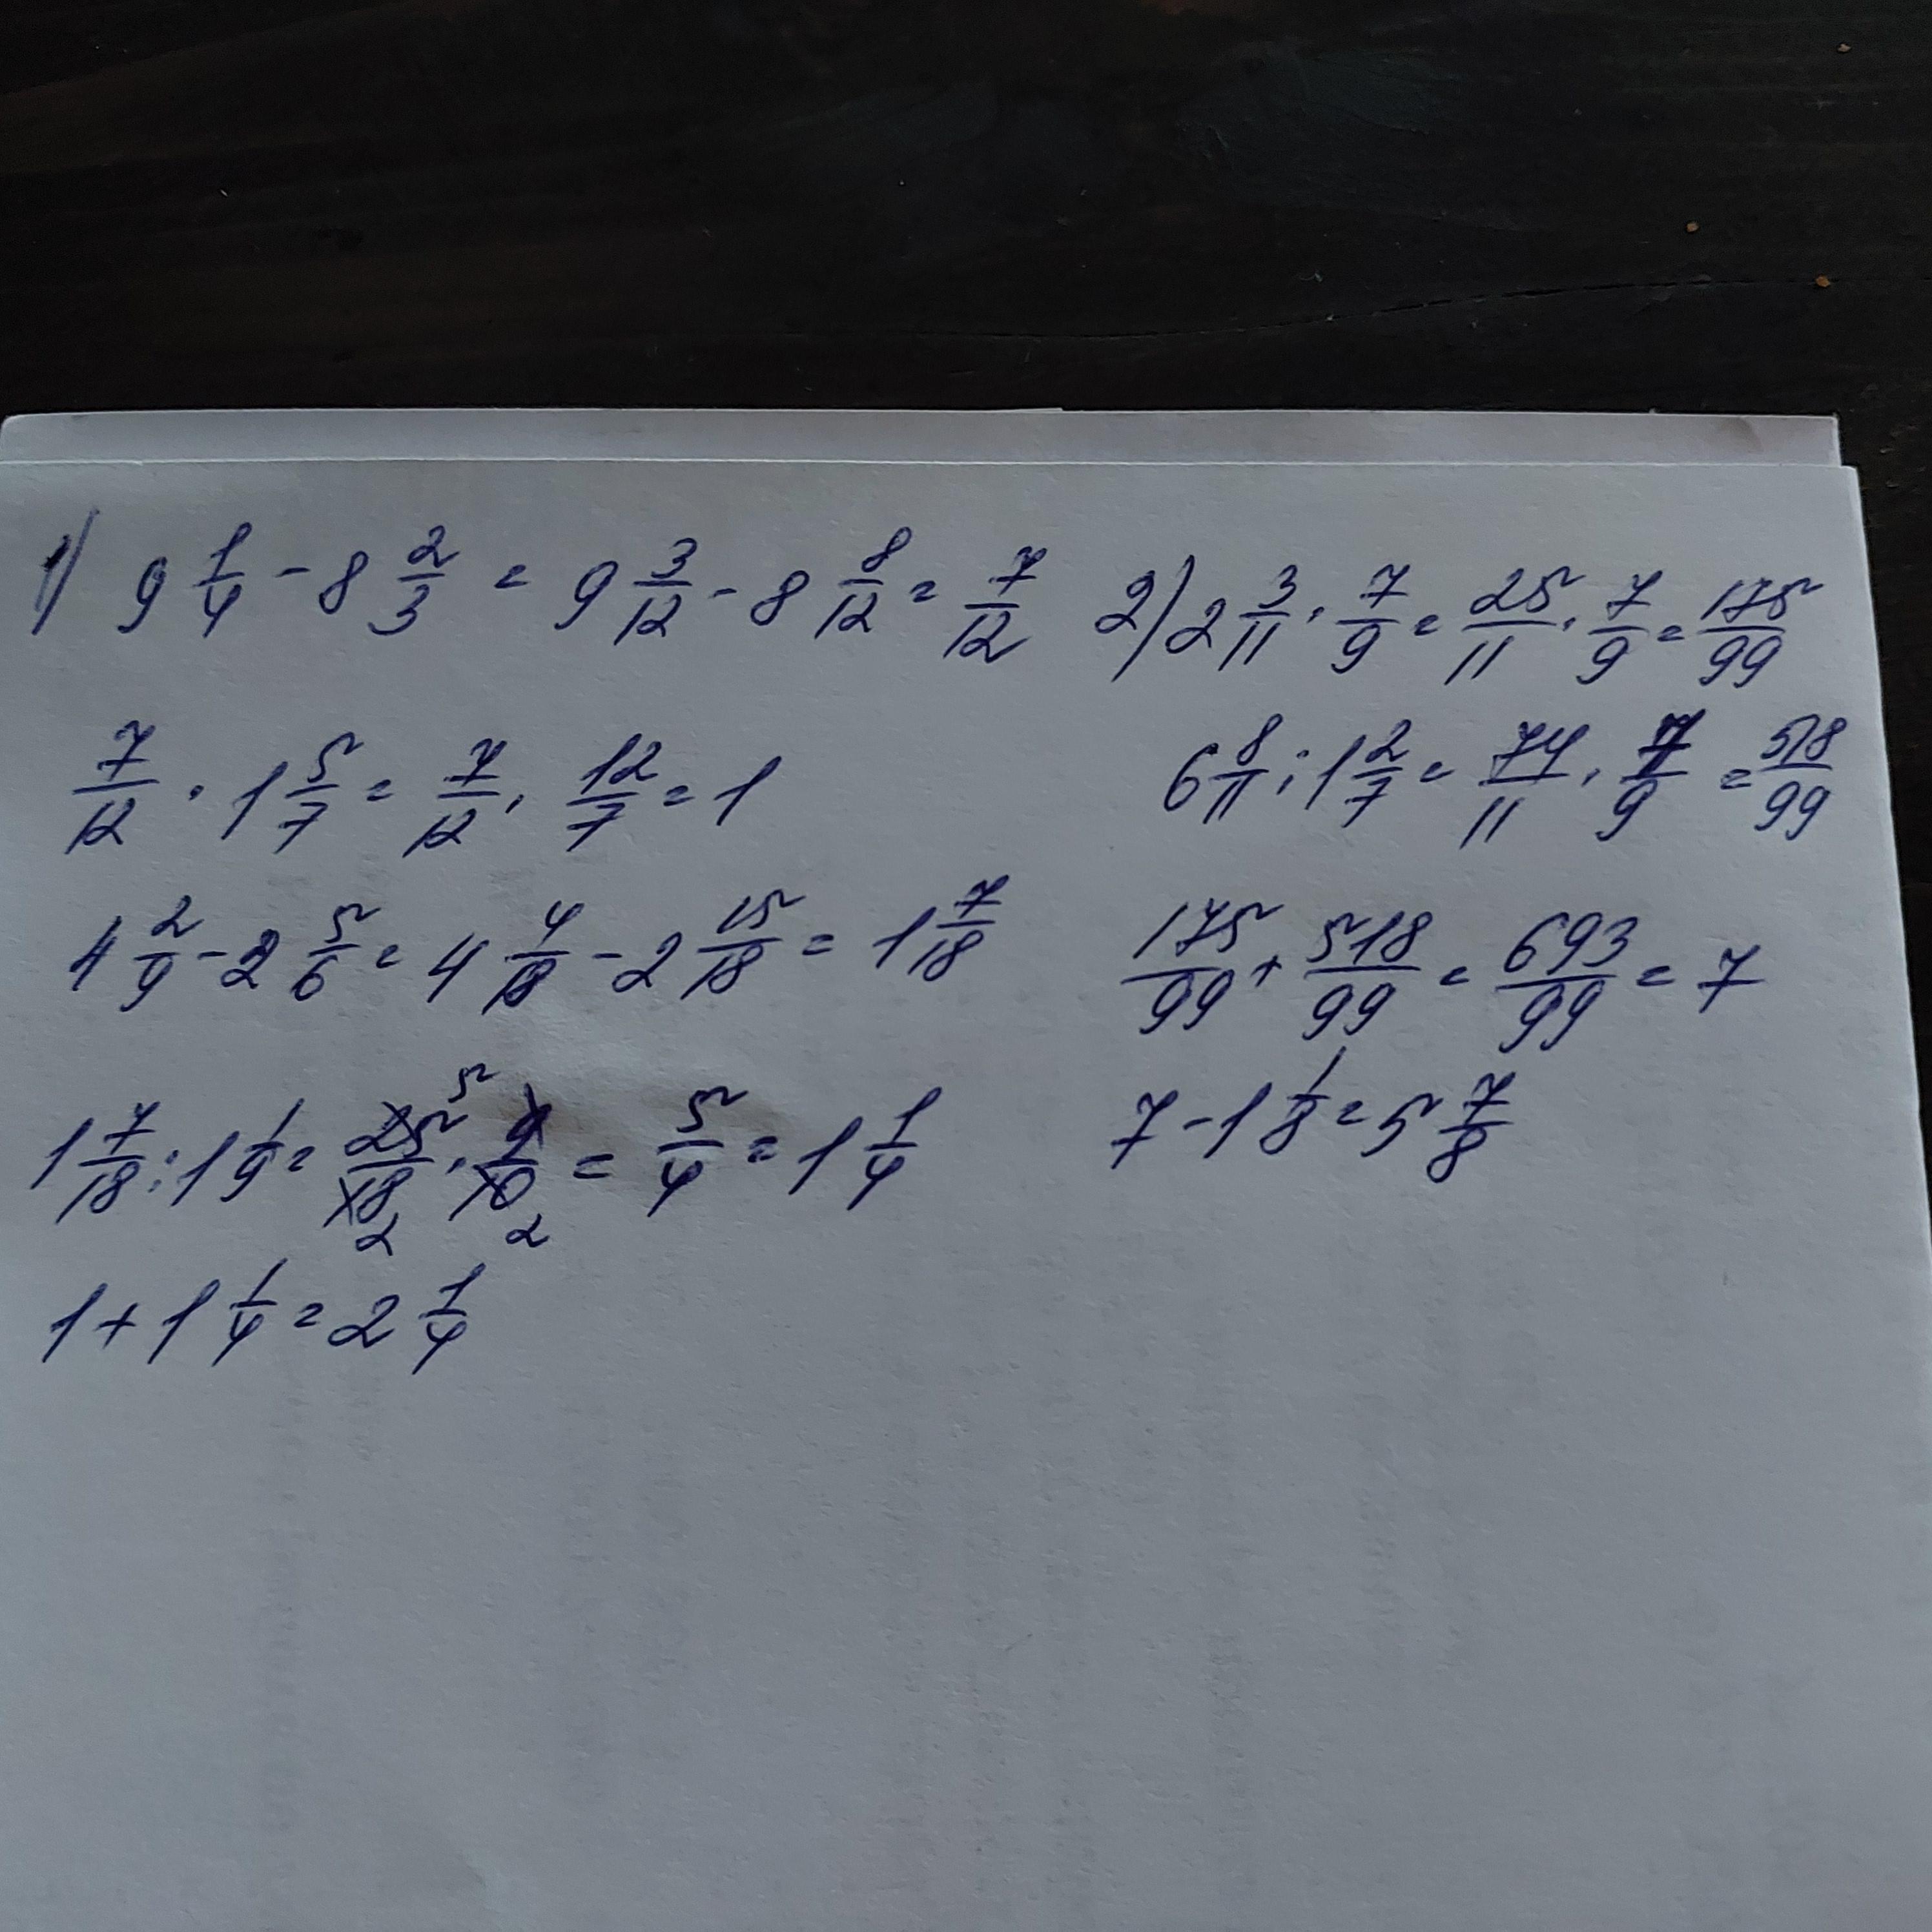 1) 9 1/4 - 8 2/3 = 9 3/12 - 8 8/12 = 7/12
7/12 · 1 5/7 = 7/12 · 12/7 = 1
4 2/9 - 2 5/6 = 4 4/18 - 2 15/18 = 1 7/18
1 7/18 : 1 1/9 = 25/18 · 9/10 = 5/4 = 1 1/4
5
2 2
1 + 1 1/4 = 2 1/4
2) 2 3/11 · 7/9 = 25/11 · 7/9 = 175/99
6 8/11 : 1 2/7 = 74/11 · 7/9 = 518/99
175/99 + 518/99 = 693/99 = 7
7 - 1 1/8 = 5 7/8